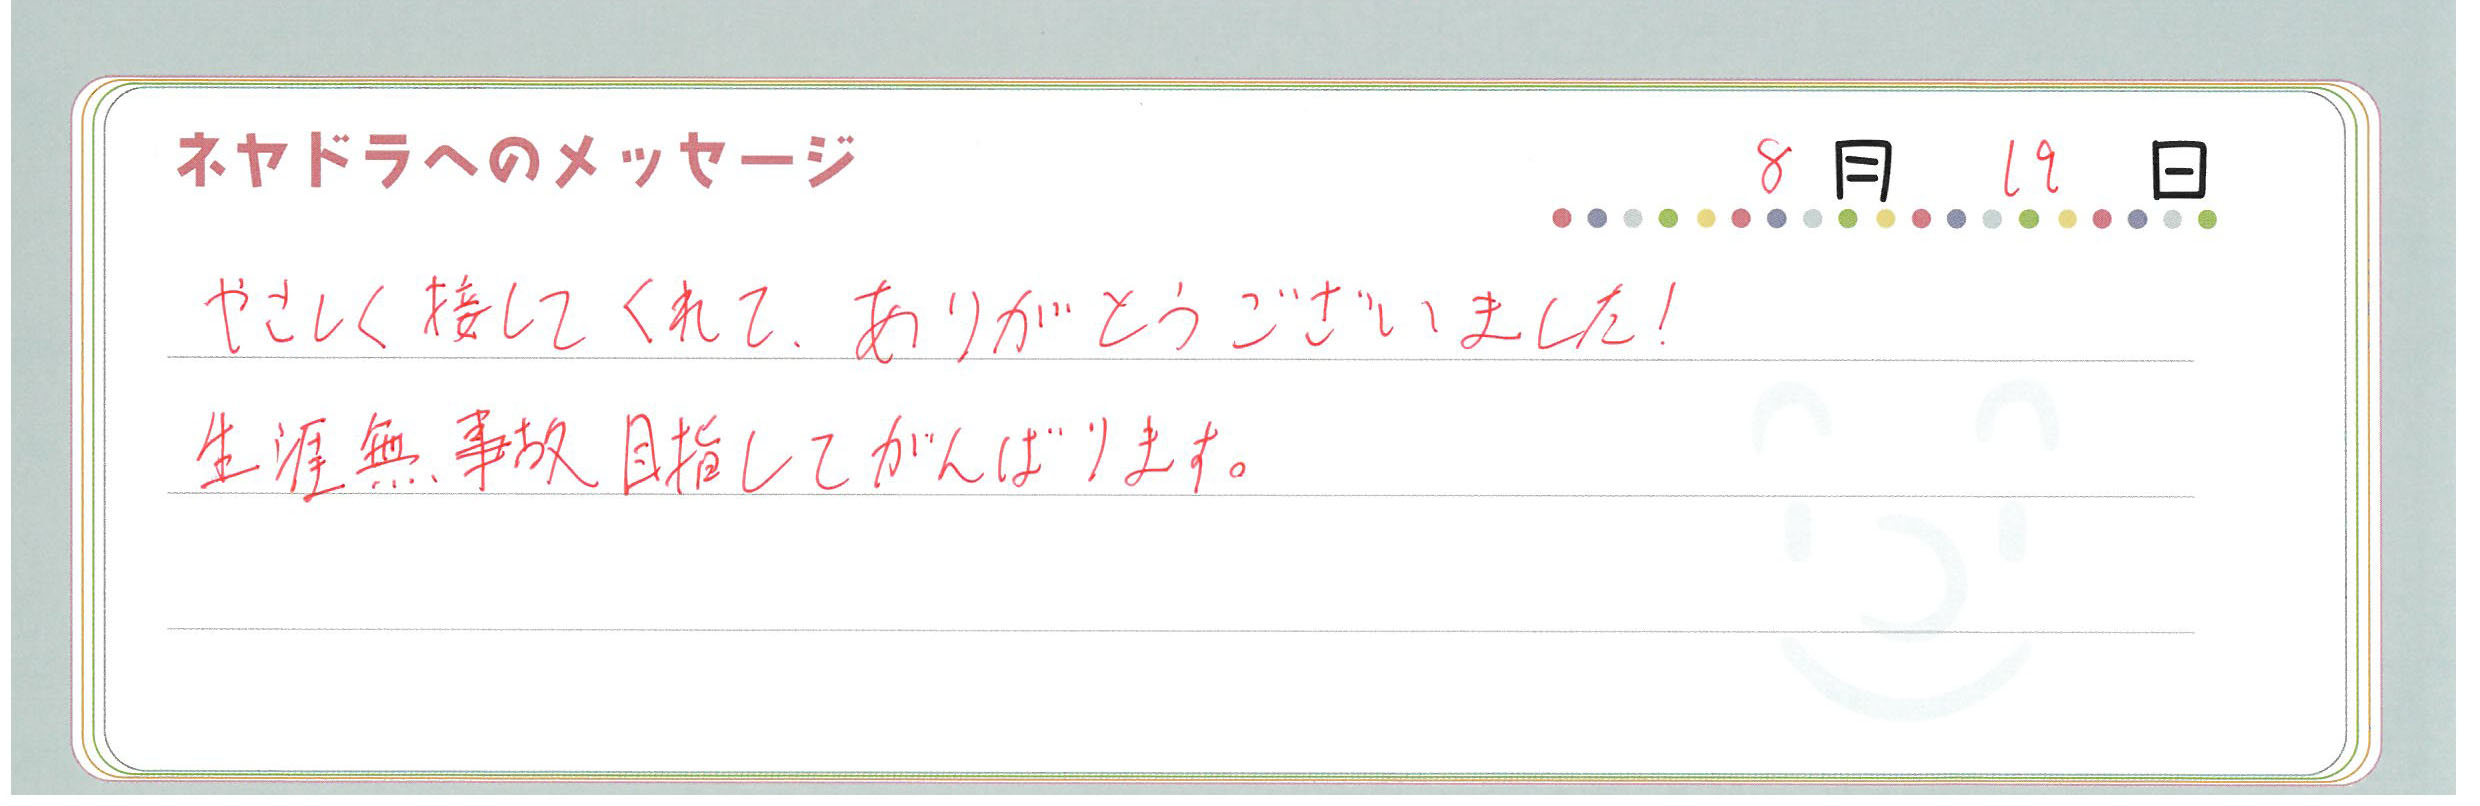 ネヤドラへのメッセージ 8月 19日
やさしく接してくれて、ありがとうございました!
生涯無事故目指してがんばります。